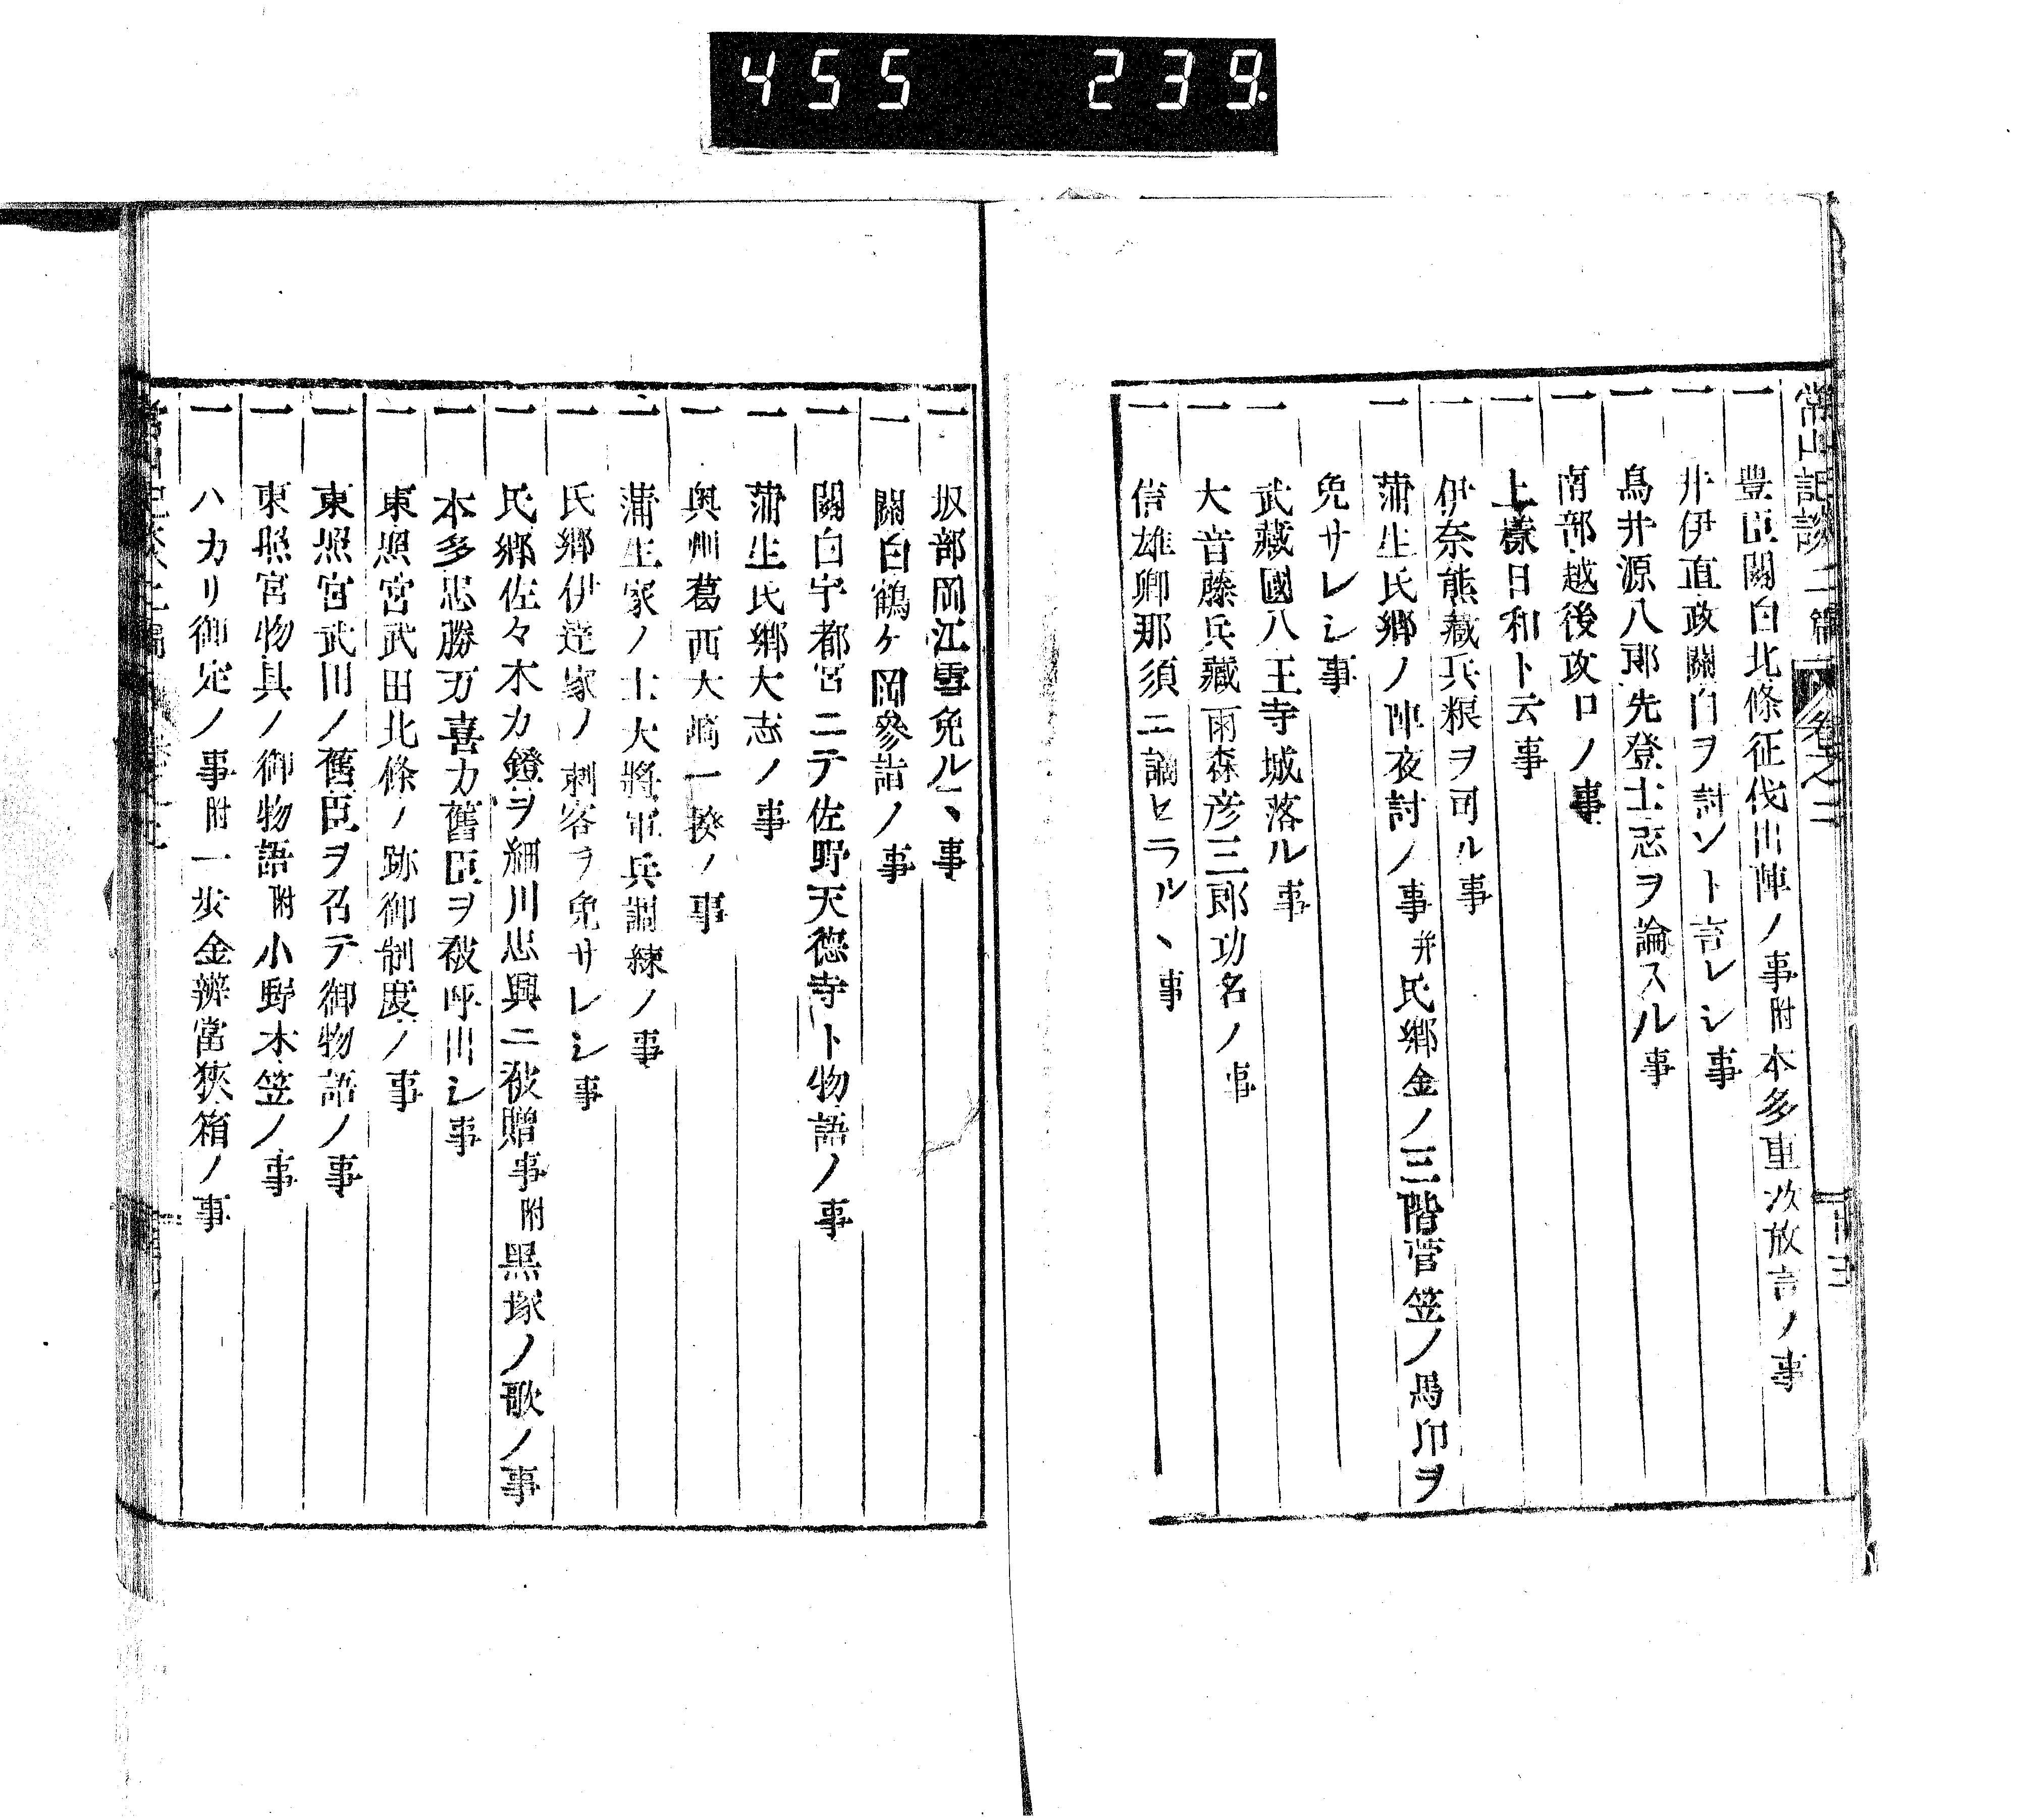 455 239.
常山記談二篇 卷之二
一 豊臣關白北條征伐出陣ノ事附本多重次放言ノ事
一 井伊直政關白ヲ討ント言レシ事
一 鳥井源八郎先登士志ヲ論スル事
一 南部越後攻口ノ事
一 上樣日和ト云事
一 伊奈熊藏兵粮ヲ司ル事
一 蒲生氏郷ノ陣夜討ノ事并氏郷金ノ三階菅笠ノ馬印ヲ
免サレシ事
一 武藏國八王寺城落ル事
一 大音藤兵藏雨森彦三郎功名ノ事
一 信雄卿那須ニ謫セラルヽ事
一 坂部岡江雪免ルヽ事
一 關白鶴ケ岡參詣ノ事
一 關白宇都宮ニテ佐野天德寺ト物語ノ事
一 蒲生氏郷大志ノ事
一 奥州葛西大崎一揆ノ事
一 蒲生家ノ士大將軍兵調練ノ事
一 氏郷伊達家ノ刺客ヲ免サレシ事
一 氏郷佐々木カ鐙ヲ細川忠興ニ被贈事附黑塚ノ歌ノ事
一 本多忠勝万喜カ舊臣ヲ被呼出シ事
一 東照宮武田北條ノ跡御制度ノ事
一 東照宮武田ノ舊臣ヲ召テ御物語ノ事
一 東照宮物具ノ御物語附小野木笠ノ事
一 ハカリ御定ノ事附一歩金辨當狹箱ノ事